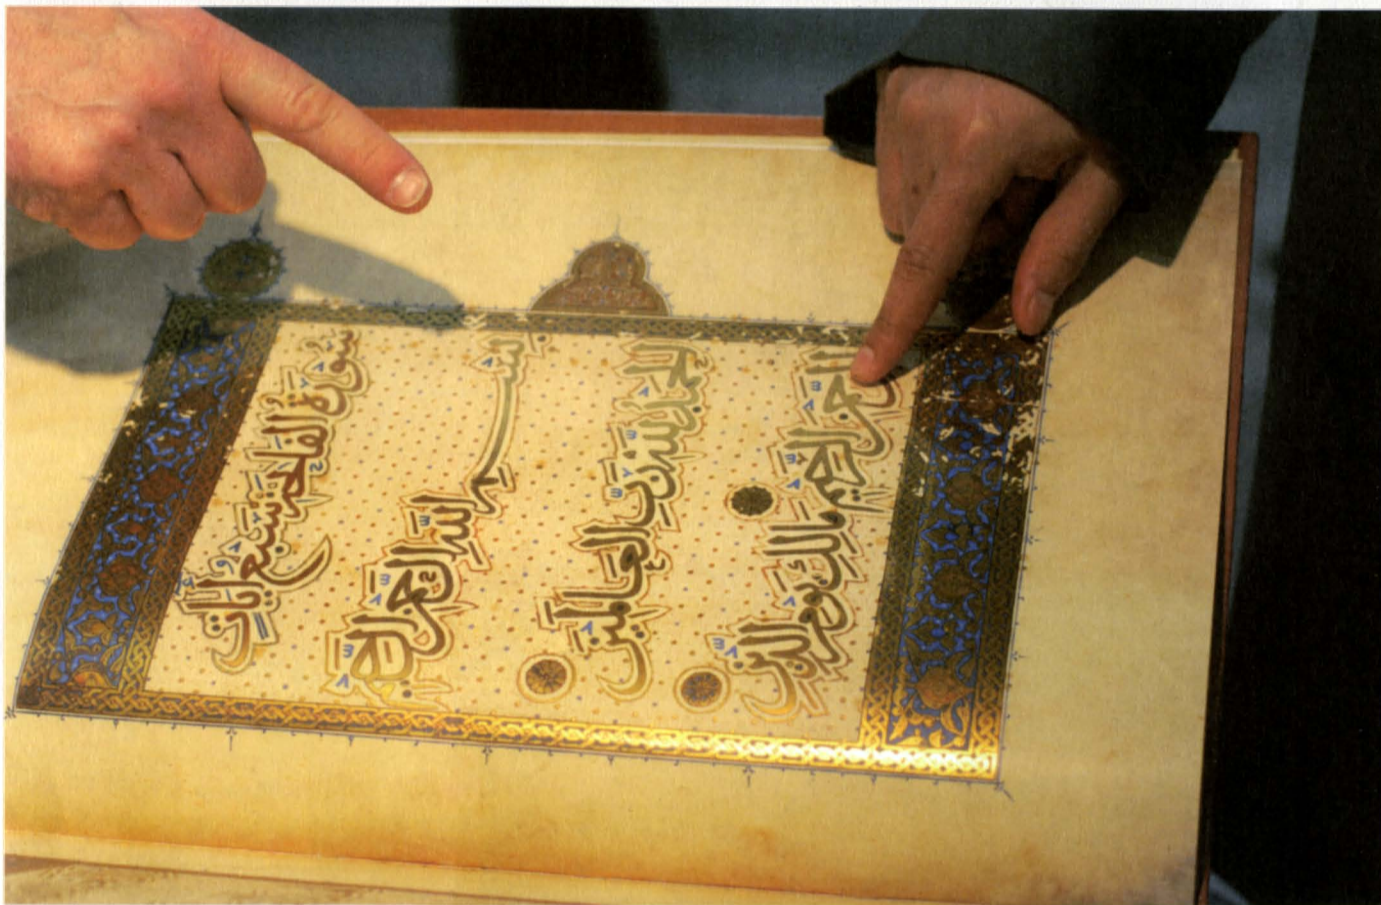 سُورَةُ الفَاتِحَةِ سَبْعُ اٰيَاتٍ
بِسْمِ اللَّهِ الرَّحْمٰنِ الرَّحِيمِ
الْحَمْدُ لِلَّهِ رَبِّ الْعَالَمِينَ
الرَّحْمٰنِ الرَّحِيمِ مَالِكِ يَوْمِ الدِّينِ